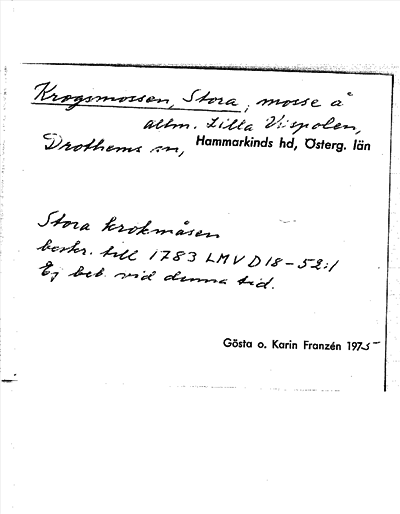 Krogsmossen, Stora, mosse å
allm. Lilla Vispolen,
Drothems sn, Hammarkinds hd, Österg. län
Stora krokmåsen
beskr. till 1783 LMV D18-52:1
Ej beb. vid denna tid.
Gösta o. Karin Franzén 1975